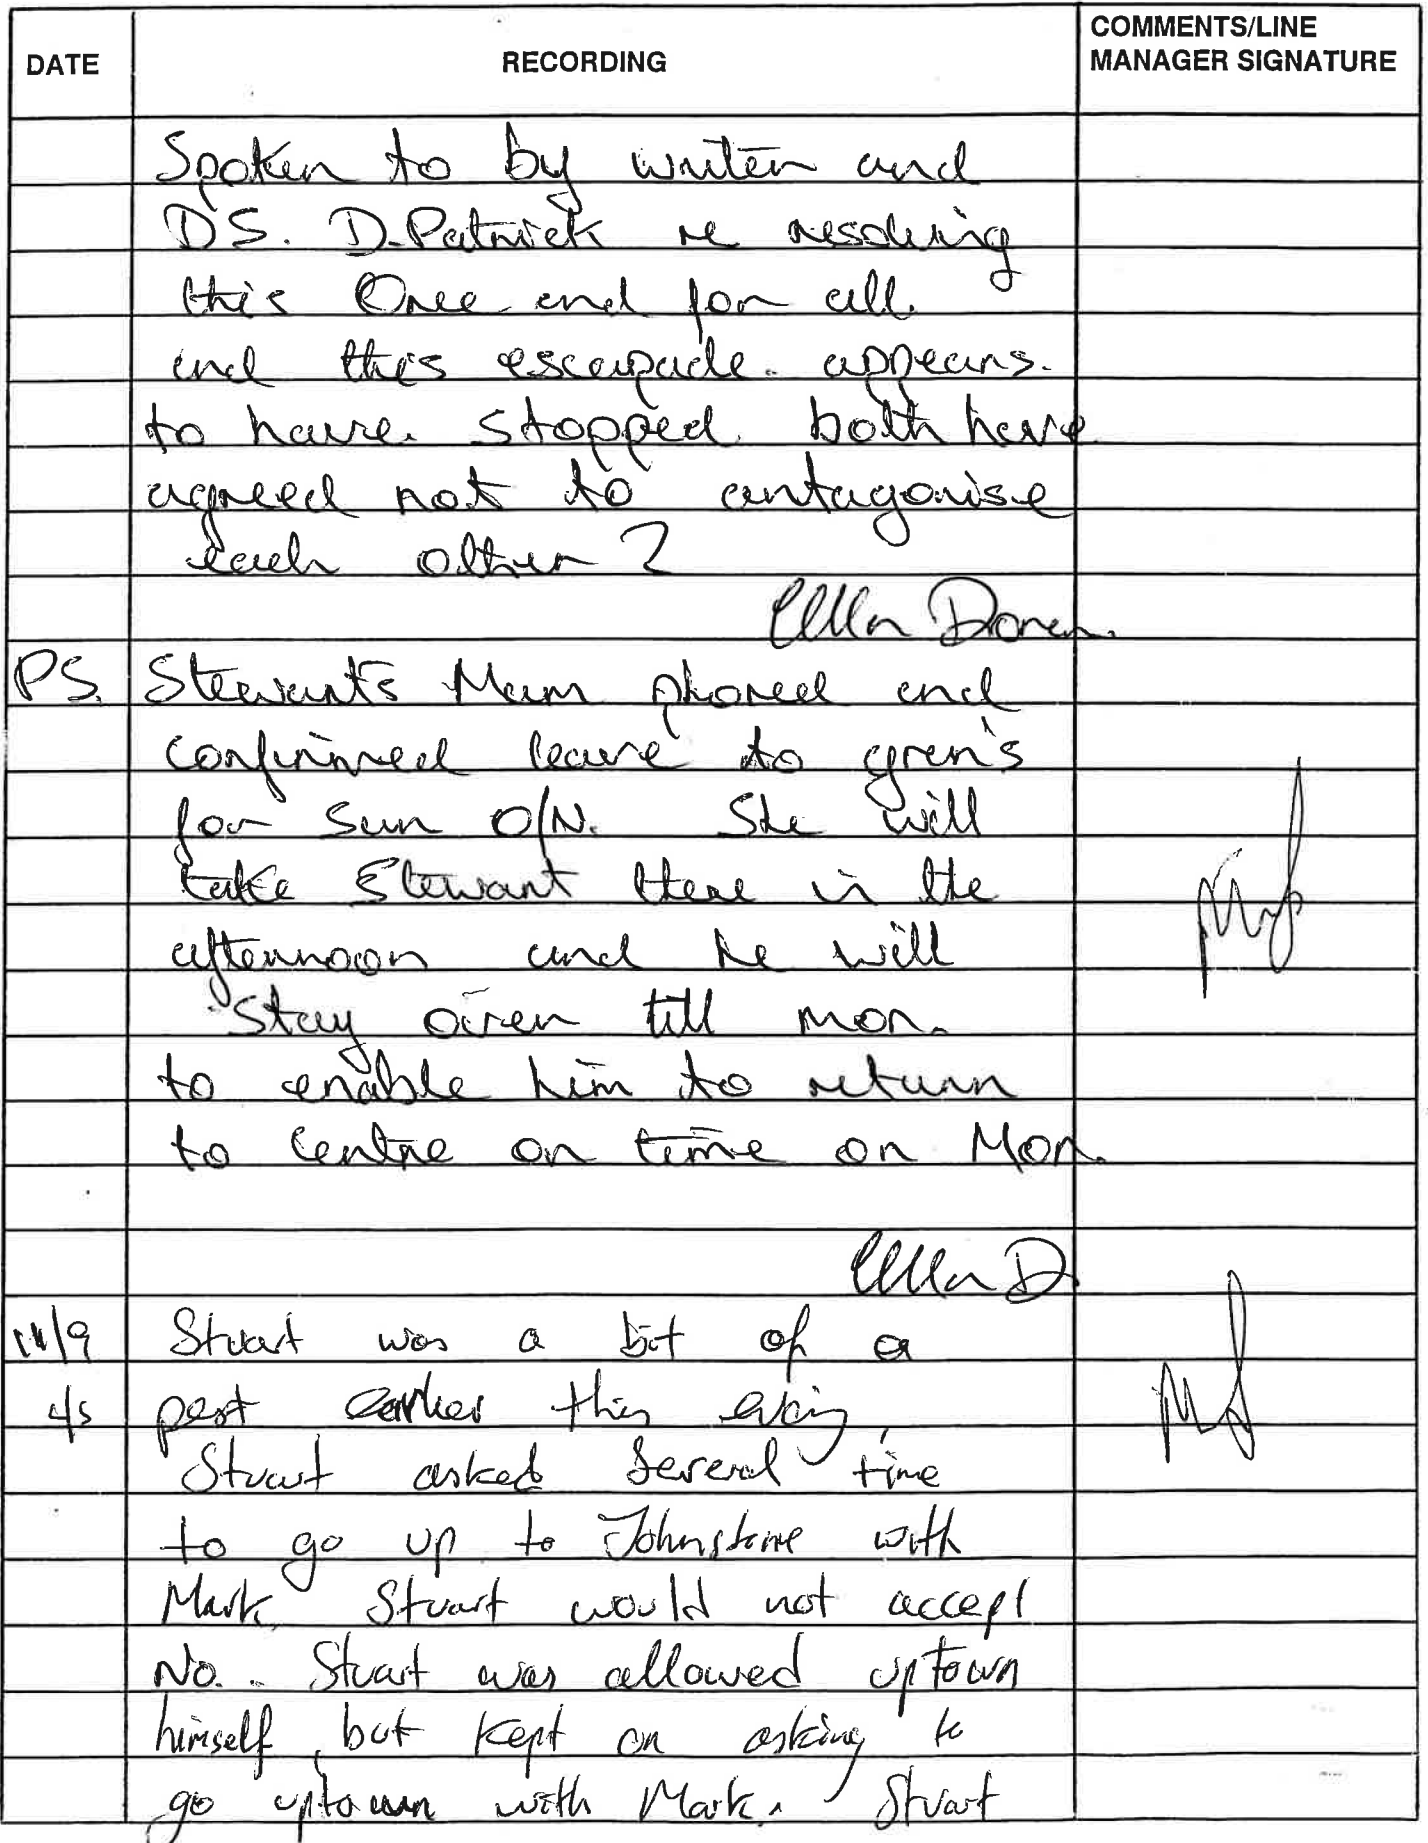 DATE
RECORDING
COMMENTS/LINE
MANAGER SIGNATURE
Spoken to by writer and
DS. D. Patrick re resolving
this Once and for all.
and this escapade. appears.
to have. stopped. both have
agreed not to antagonise
each other ?
PS. Stewart's Mum phoned and
confirmed leave to gran's
for Sun O/N. She will
take Stewart there in the
afternoon and he will
Stay over till mon.
to enable him to return
to Centre on time on Mon.
Stuart was a bit of a
pest earlier this
Stuart asked several time
to go up to Johnstone with
Mark. Stuart would not accept
No. Stuart was allowed uptown
himself, but kept on asking to
go uptown with Mark. Stuart